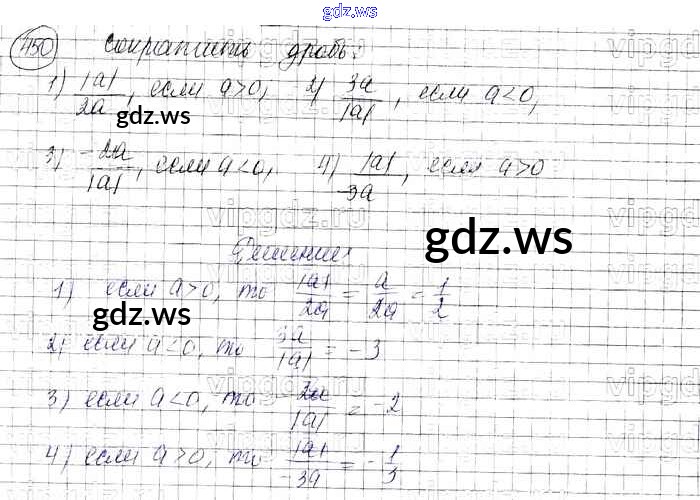 gdz.ws
450 Сократить дробь:
1) |a|/2a, если a>0, 2) 3a/|a|, если a<0,
gdz.ws
3) -2a/|a|, если a<0, 4) |a|/-3a, если a>0
gdz.ws
Решение:
1) если a>0, то |a|/2a = a/2a = 1/2
gdz.ws
2) если a<0, то 3a/|a| = -3
3) если a<0, то -2a/|a| = -2
4) если a>0, то |a|/-3a = -1/3
vipgdz.ru